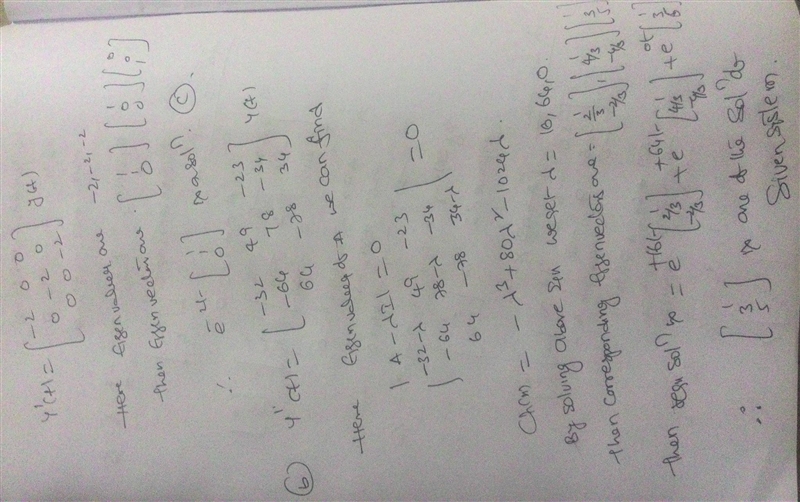 y'(t) = [-2 0 0; 0 -2 0; 0 0 -2] y(t)
Here Eigenvalues are -2, -2, -2
then Eigenvectors are [1 0] [1 0 0] [0 0 1]
∴ e^-2t [1 1 0] is a solⁿ. (C).
(b) y'(t) = [-32 49 -23; -64 78 -34; 64 -78 34] y(t)
Here Eigenvalues of A we can find
|A - λI| = 0
|-32-λ 49 -23; -64 78-λ -34; 64 -78 34-λ| = 0
Ch(λ) = -λ³ + 80λ² - 1024λ.
By solving above Eqn we get λ = 16, 64, 0.
then corresponding Eigenvectors are = [1 2/3 -2/3], [1 4/3 -4/3] [1 3 5]
then reqn Solⁿ is = e^+16t [1 2/3 -2/3] + e^+64t [1 4/3 -4/3] + e^0t [1 3 5]
∴ [1 3 5] is one of the Solⁿ to
Given System.